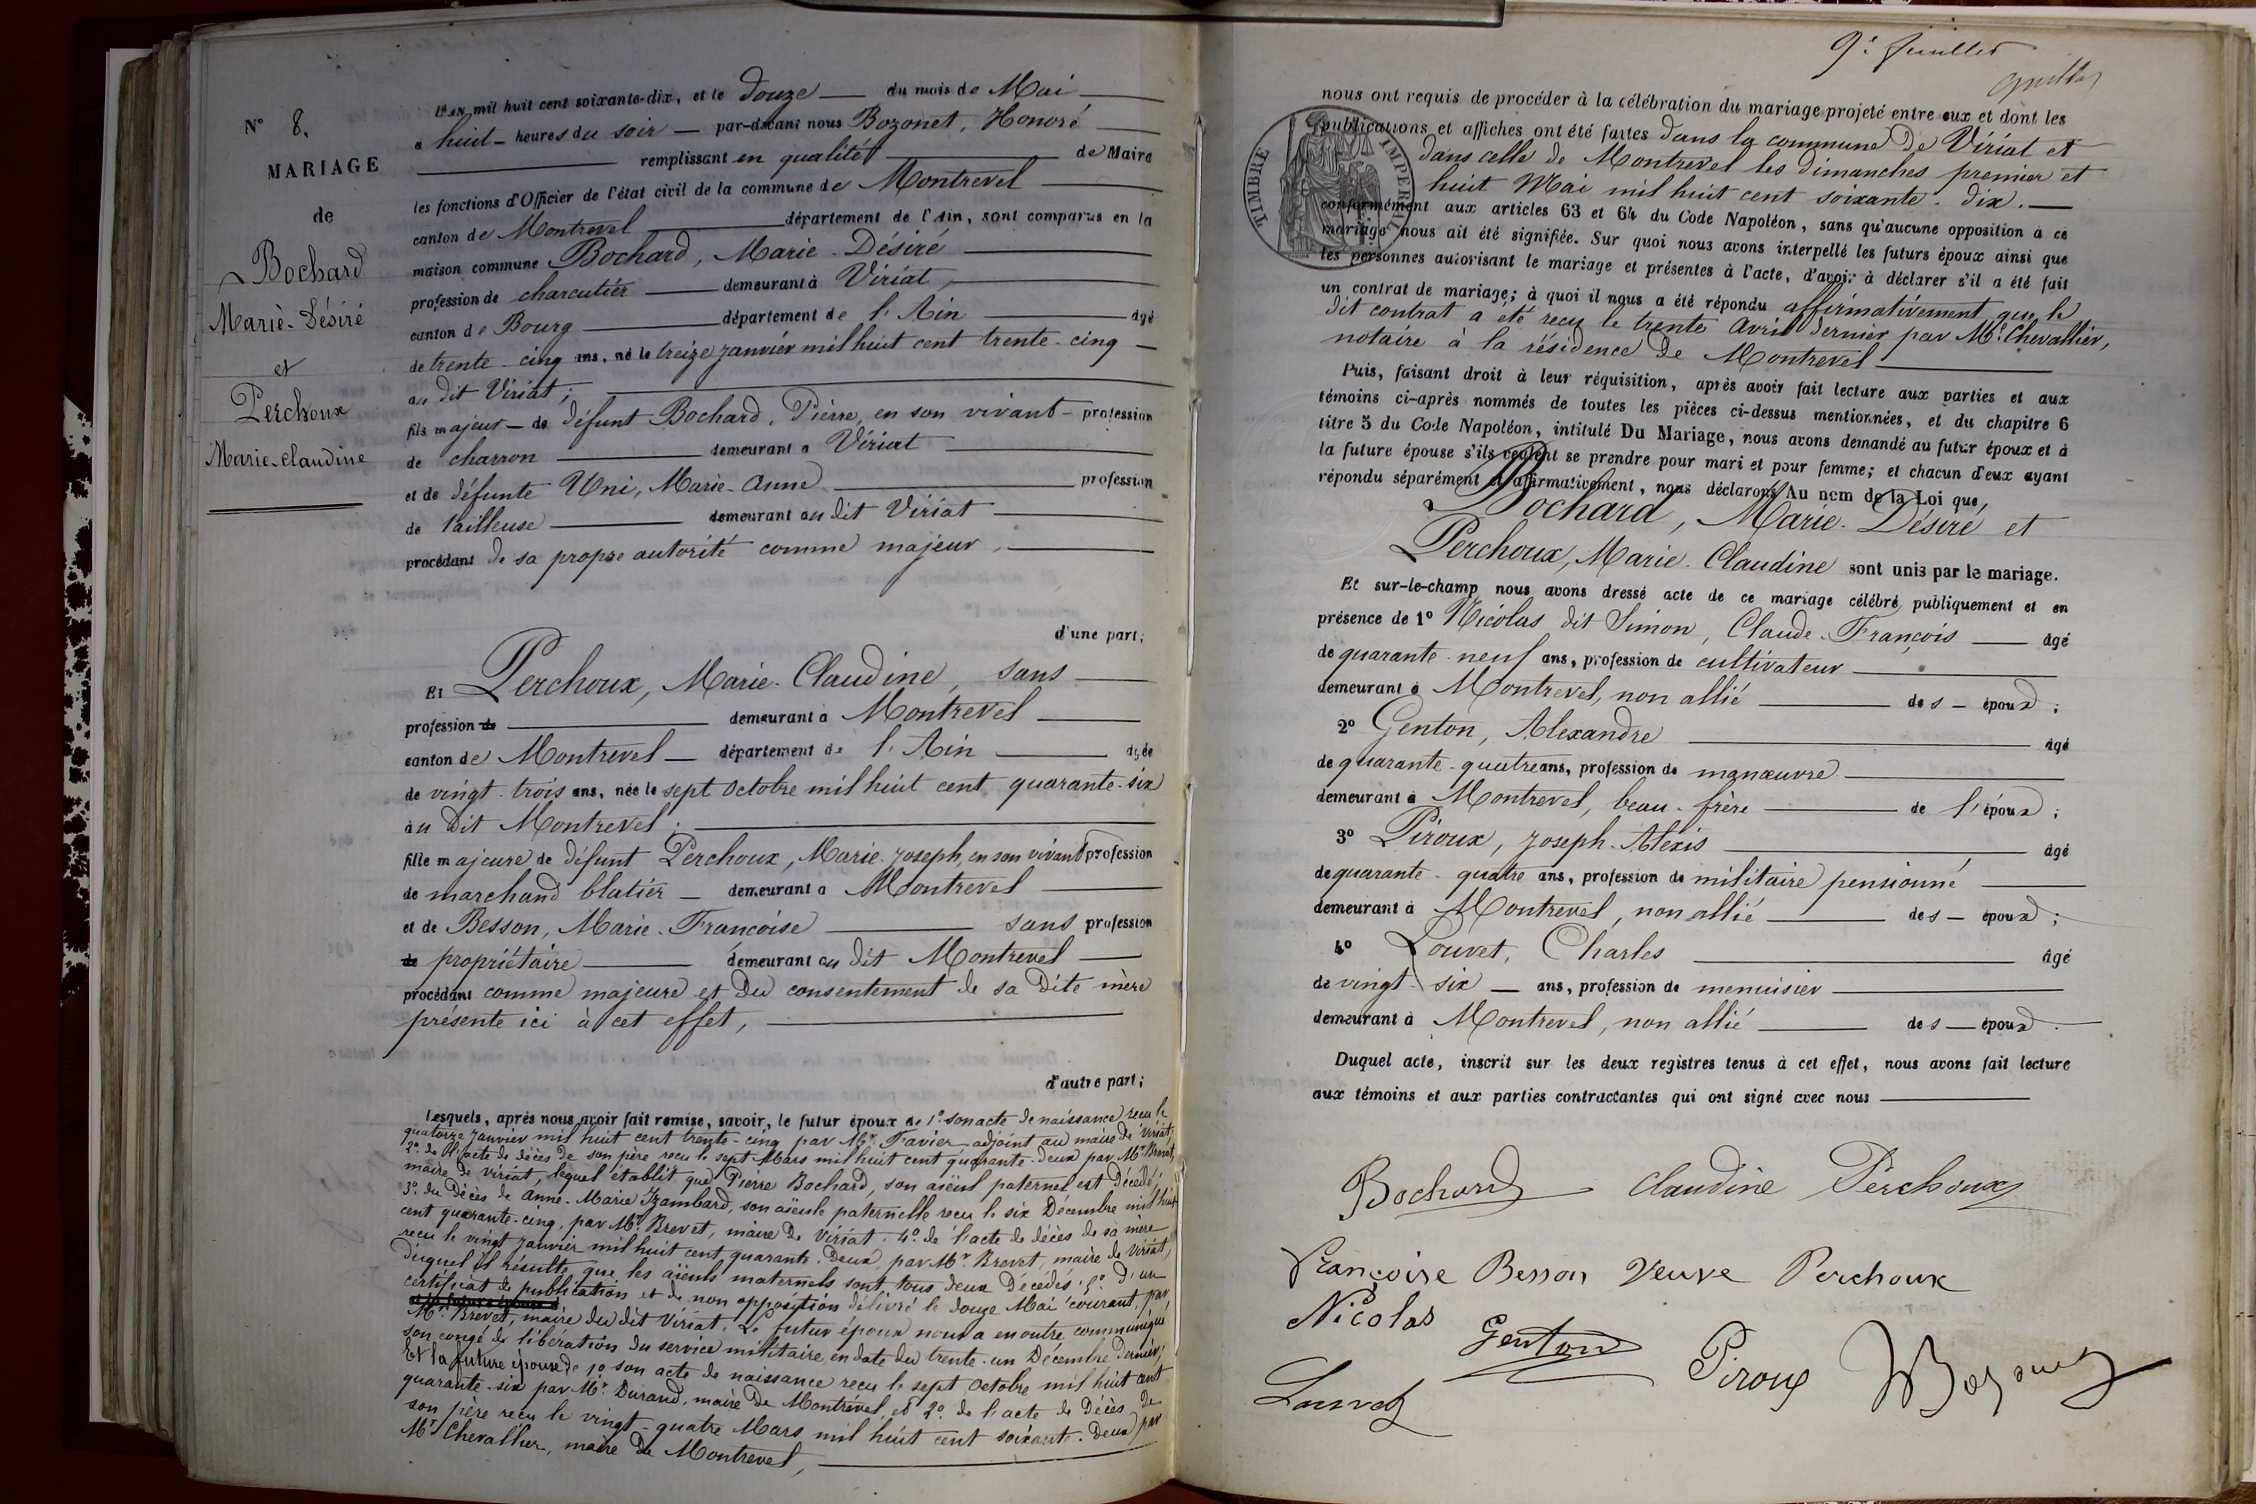 N° 8.
MARIAGE
de
Bochard
Marie-Désiré
et
Perchoux
Marie-Claudine
L'AN mil huit cent soixante-dix, et le douze du mois de Mai
à huit heures du soir par-devant nous Bozonet, Honoré
remplissant en qualité de Maire
les fonctions d'Officier de l'état civil de la commune de Montrevel
canton de Montrevel département de l'Ain, sont comparus en la
maison commune Bochard, Marie-Désiré
profession de charcutier demeurant à Viriat,
canton de Bourg département de l'Ain âgé
de trente-cinq ans, né le treize janvier mil huit cent trente-cinq
au dit Viriat ;
fils majeur de défunt Bochard, Pierre, en son vivant profession
de charron demeurant à Viriat
et de défunte Uni, Marie-Anne profession
de tailleuse demeurant au dit Viriat
procédant de sa propre autorité comme majeur,
d'une part;
Et Perchoux, Marie-Claudine, sans
profession de demeurant à Montrevel
canton de Montrevel département de l'Ain âgée
de vingt-trois ans, née le sept Octobre mil huit cent quarante-six
au dit Montrevel ;
fille majeure de défunt Perchoux, Marie-Joseph, en son vivant profession
de marchand blatier demeurant à Montrevel
et de Besson, Marie-Françoise sans profession
de propriétaire demeurant au dit Montrevel
procédant comme majeure et du consentement de sa dite mère
présente ici à cet effet,
d'autre part;
Lesquels, après nous avoir fait remise, savoir, le futur époux de 1° son acte de naissance reçu le
quatorze janvier mil huit cent trente-cinq par Mr. Favier adjoint au maire de Viriat;
2° de l'acte de décès de son père reçu le sept Mars mil huit cent quarante-deux par Mr. Brevet,
maire de Viriat, lequel établit que Pierre Bochard, son aïeul paternel est décédé;
3° du décès de Anne-Marie Izambard, son aïeule paternelle reçu le six Décembre mil huit
cent quarante-cinq, par Mr. Brevet, maire de Viriat; 4° de l'acte de décès de sa mère
reçu le vingt janvier mil huit cent quarante-deux, par Mr. Brevet, maire de Viriat,
duquel il résulte que les aïeuls maternels sont tous deux décédés; 5° d'un
certificat de publication et de non opposition délivré le douze Mai courant, par
Mr. Brevet, maire du dit Viriat. Le futur époux nous a en outre communiqué
son congé de libération du service militaire en date du trente-un Décembre dernier;
Et la future épouse de 1° son acte de naissance reçu le sept Octobre mil huit cent
quarante-six par Mr. Durand, maire de Montrevel et 2° de l'acte de Décès de
son père reçu le vingt-quatre Mars mil huit cent soixante-deux par
Mr Chevallier, maire de Montrevel,
9e feuillet
TIMBRE IMPERIAL
nous ont requis de procéder à la célébration du mariage projeté entre eux et dont les
publications et affiches ont été faites dans la commune de Viriat et
dans celle de Montrevel les dimanches premier et
huit Mai mil huit cent soixante-dix.
conformément aux articles 63 et 64 du Code Napoléon, sans qu'aucune opposition à ce
mariage nous ait été signifiée. Sur quoi nous avons interpellé les futurs époux ainsi que
les personnes autorisant le mariage et présentes à l'acte, d'avoir à déclarer s'il a été fait
un contrat de mariage; à quoi il nous a été répondu affirmativement que le
dit contrat a été reçu le trente Avril dernier par Me. Chevallier,
notaire à la résidence de Montrevel
Puis, faisant droit à leur réquisition, après avoir fait lecture aux parties et aux
témoins ci-après nommés de toutes les pièces ci-dessus mentionnées, et du chapitre 6
titre 5 du Code Napoléon, intitulé Du Mariage, nous avons demandé au futur époux et à
la future épouse s'ils veulent se prendre pour mari et pour femme; et chacun d'eux ayant
répondu séparément et affirmativement, nous déclarons Au nom de la Loi que,
Bochard, Marie-Désiré et
Perchoux, Marie-Claudine sont unis par le mariage.
Et sur-le-champ nous avons dressé acte de ce mariage célébré publiquement et en
présence de 1° Nicolas dit Simon, Claude-François âgé
de quarante-neuf ans, profession de cultivateur
demeurant à Montrevel, non allié des époux ;
2° Genton, Alexandre âgé
de quarante-quatre ans, profession de manœuvre
demeurant à Montrevel, beau-frère de l'époux ;
3° Piroux, Joseph-Alexis âgé
de quarante-quatre ans, profession de militaire pensionné
demeurant à Montrevel, non allié des époux ;
4° Louvet, Charles âgé
de vingt-six ans, profession de menuisier
demeurant à Montrevel, non allié des époux.
Duquel acte, inscrit sur les deux registres tenus à cet effet, nous avons fait lecture
aux témoins et aux parties contractantes qui ont signé avec nous
Bochard Claudine Perchoux
Françoise Besson Veuve Perchoux
Nicolas Genton Piroux Bozonet
Louvet